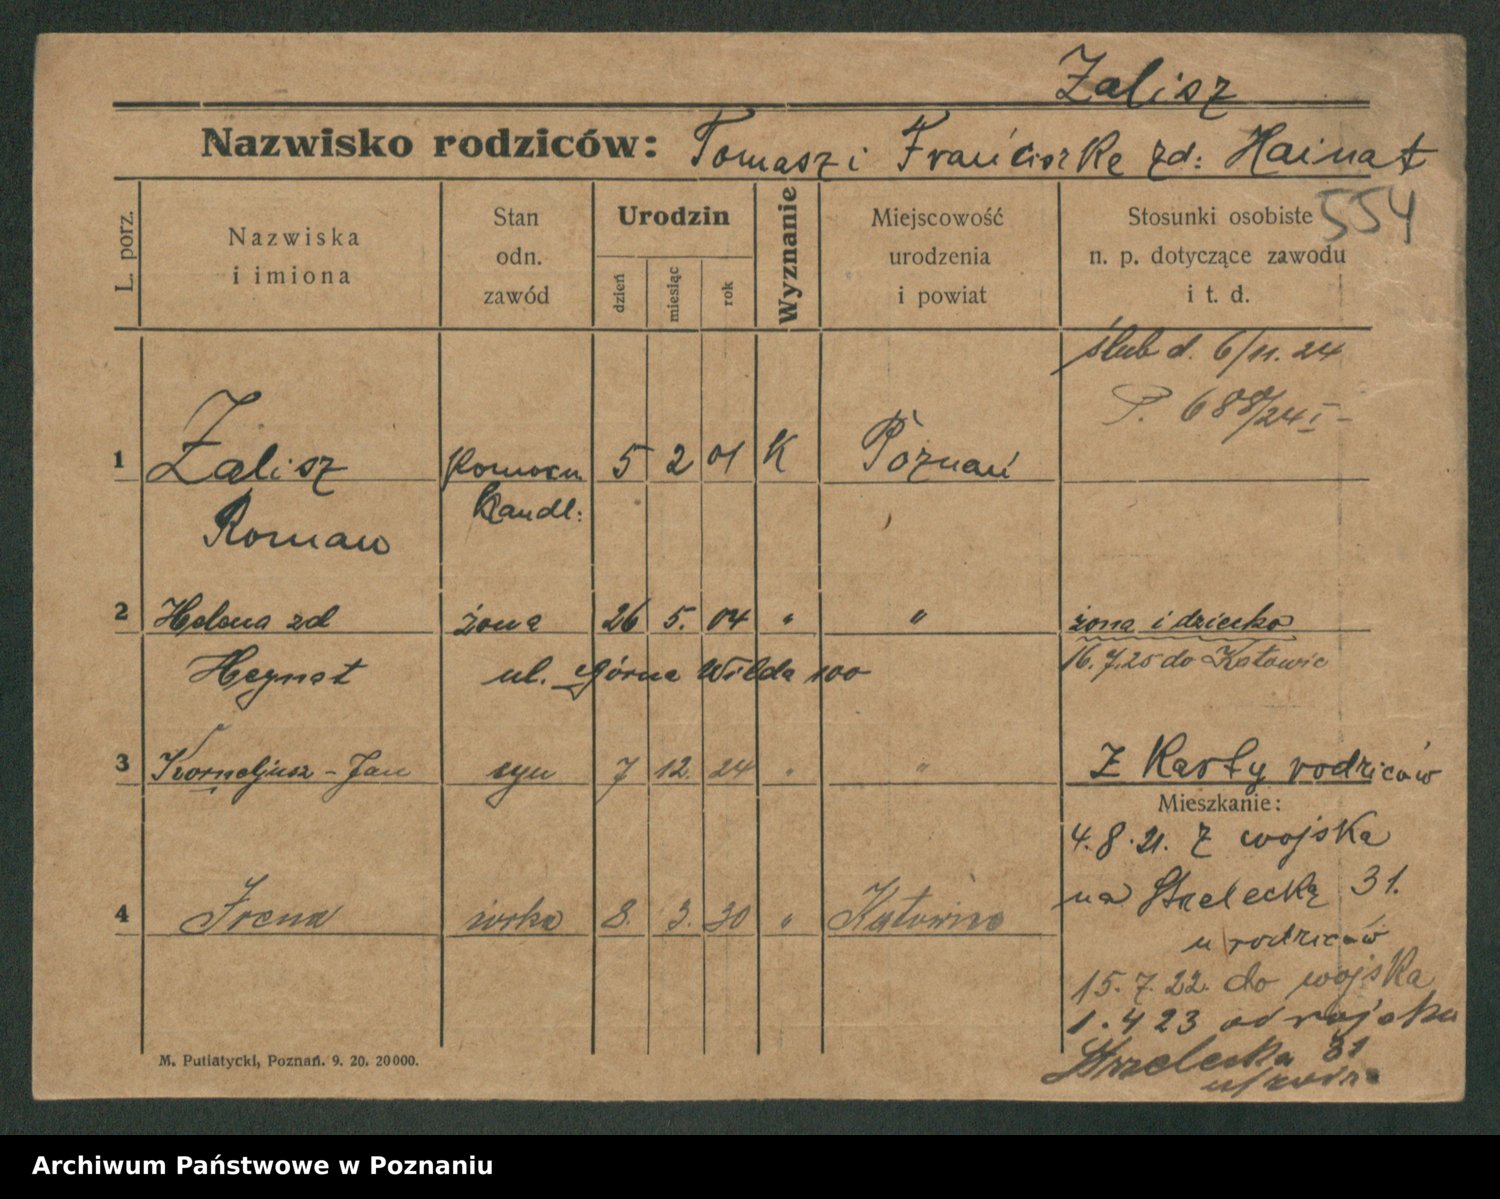 Zalisz
Nazwisko rodziców: Tomasz i Franciszka zd: Hainat
554
L. porz.
Nazwiska i imiona
Stan odn. zawód
Urodzin
dzień
miesiąc
rok
Wyznanie
Miejscowość urodzenia i powiat
Stosunki osobiste n. p. dotyczące zawodu i t. d.
ślub d. 6/11. 24
P. 688/24 I -
1 Zalisz Pomocn 5 2 01 K Poznań
Roman handl:
2 Helena zd żona 26 5. 04 " " żona i dziecko
Heynat ul. Górna Wilda 100 16.7.25 do Katowic
3 Korneljusz - Jan syn 7 12. 24 " " Z Karty rodziców
Mieszkanie:
4.8.21. Z wojska
na Strzelecką 31.
4 Irena córka 8. 3. 30 " Katowice
u rodziców
15.7.22. do wojska
1.4 23 od wojska
Strzelecka 31
M. Putiatycki, Poznań. 9. 20. 20000.
Archiwum Państwowe w Poznaniu